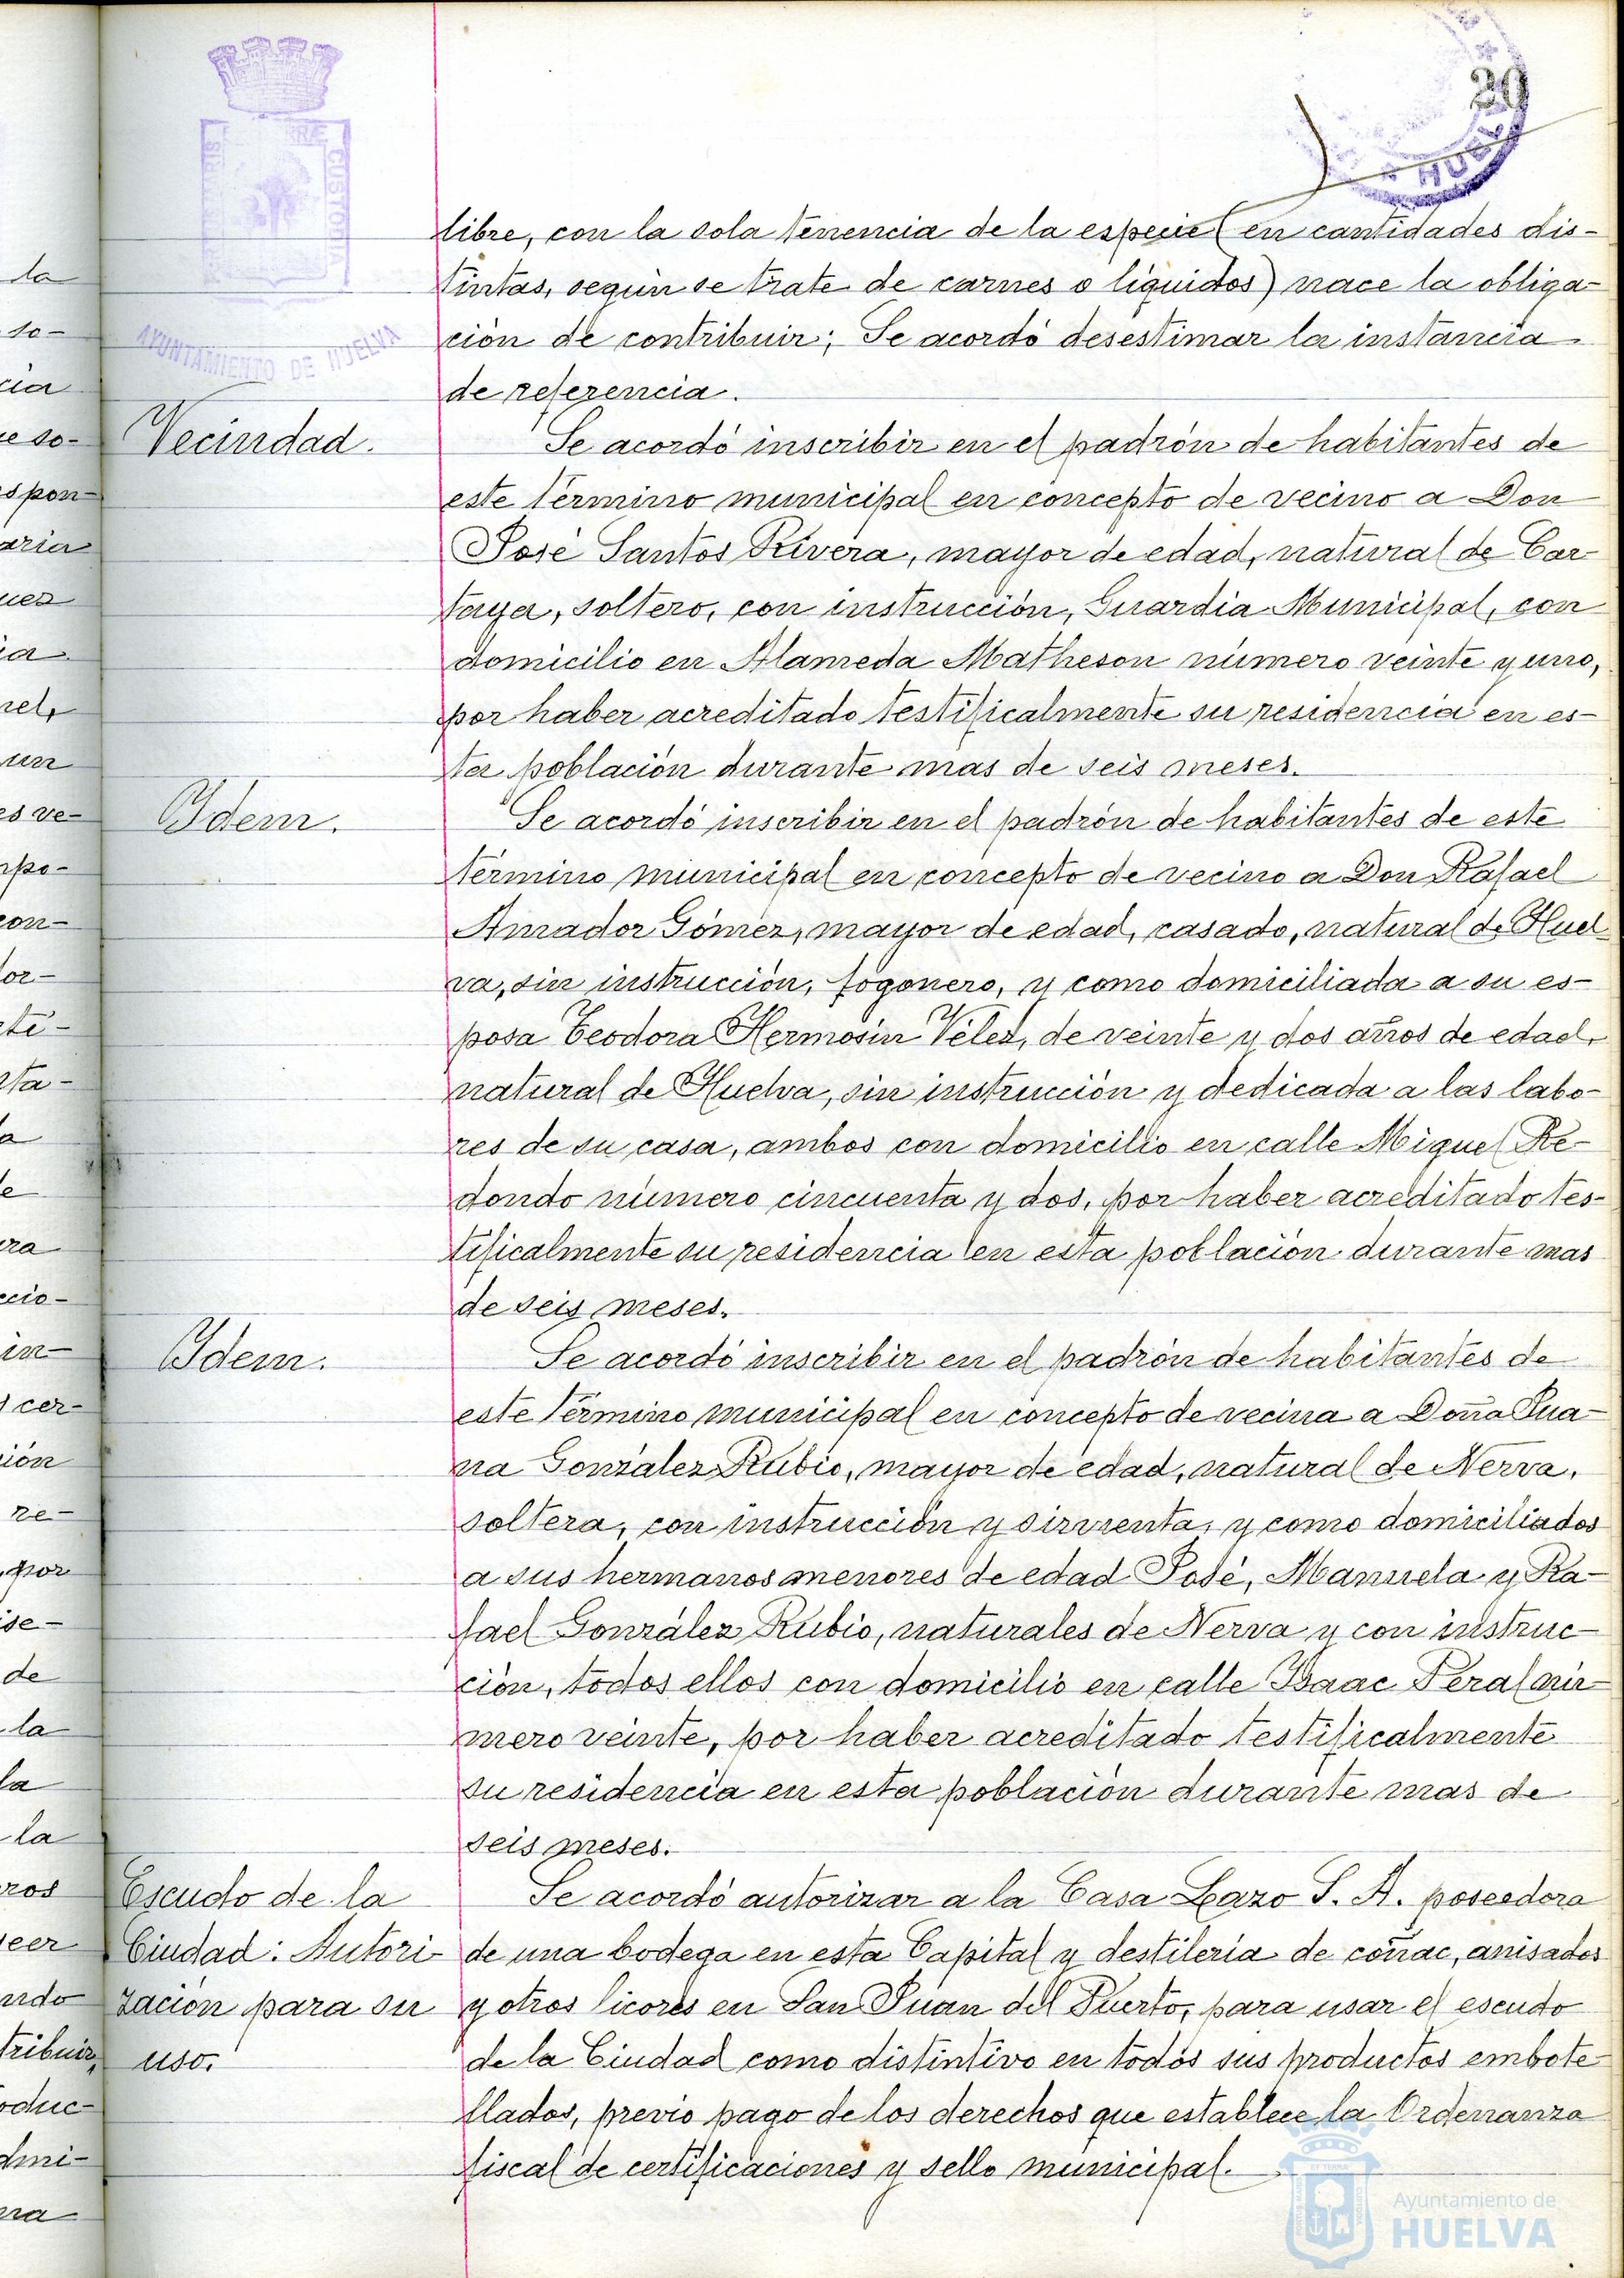 20
HUEL
CUSTODIA
AYUNTAMIENTO DE HUELVA
libre, con la sola tenencia de la especie (en cantidades dis-
tintas, según se trate de carnes o líquidos) nace la obliga-
ción de contribuir; Se acordó desestimar la instancia
de referencia.
Vecindad.
Se acordó inscribir en el padrón de habitantes de
este término municipal en concepto de vecino a Don
José Santos Rivera, mayor de edad, natural de Car-
taya, soltero, con instrucción, Guardia Municipal, con
domicilio en Alameda Matheson número veinte y uno,
por haber acreditado testificalmente su residencia en es-
ta población durante mas de seis meses.
Idem.
Se acordó inscribir en el padrón de habitantes de este
término municipal en concepto de vecino a Don Rafael
Amador Gómez, mayor de edad, casado, natural de Huel-
va, sin instrucción, fogonero, y como domiciliada a su es-
posa Teodora Hermosin Vélez, de veinte y dos años de edad,
natural de Huelva, sin instrucción y dedicada a las labo-
res de su casa, ambos con domicilio en calle Miguel Re-
dondo número cincuenta y dos, por haber acreditado tes-
tificalmente su residencia en esta población durante mas
de seis meses.
Idem.
Se acordó inscribir en el padrón de habitantes de
este término municipal en concepto de vecina a Doña Jua-
na González Rubio, mayor de edad, natural de Nerva,
soltera, con instrucción y sirvienta, y como domiciliados
a sus hermanos menores de edad José, Manuela y Ra-
fael González Rubio, naturales de Nerva y con instruc-
ción, todos ellos con domicilio en calle Isaac Peral nú-
mero veinte, por haber acreditado testificalmente
su residencia en esta población durante mas de
seis meses.
Escudo de la
Ciudad: Autori-
zación para su
uso.
Se acordó autorizar a la Casa Lazo S. A. poseedora
de una bodega en esta Capital y destilería de coñac, anisados
y otros licores en San Juan del Puerto, para usar el escudo
de la Ciudad como distintivo en todos sus productos embote-
llados, previo pago de los derechos que establece la Ordenanza
fiscal de certificaciones y sello municipal.
Ayuntamiento de
HUELVA